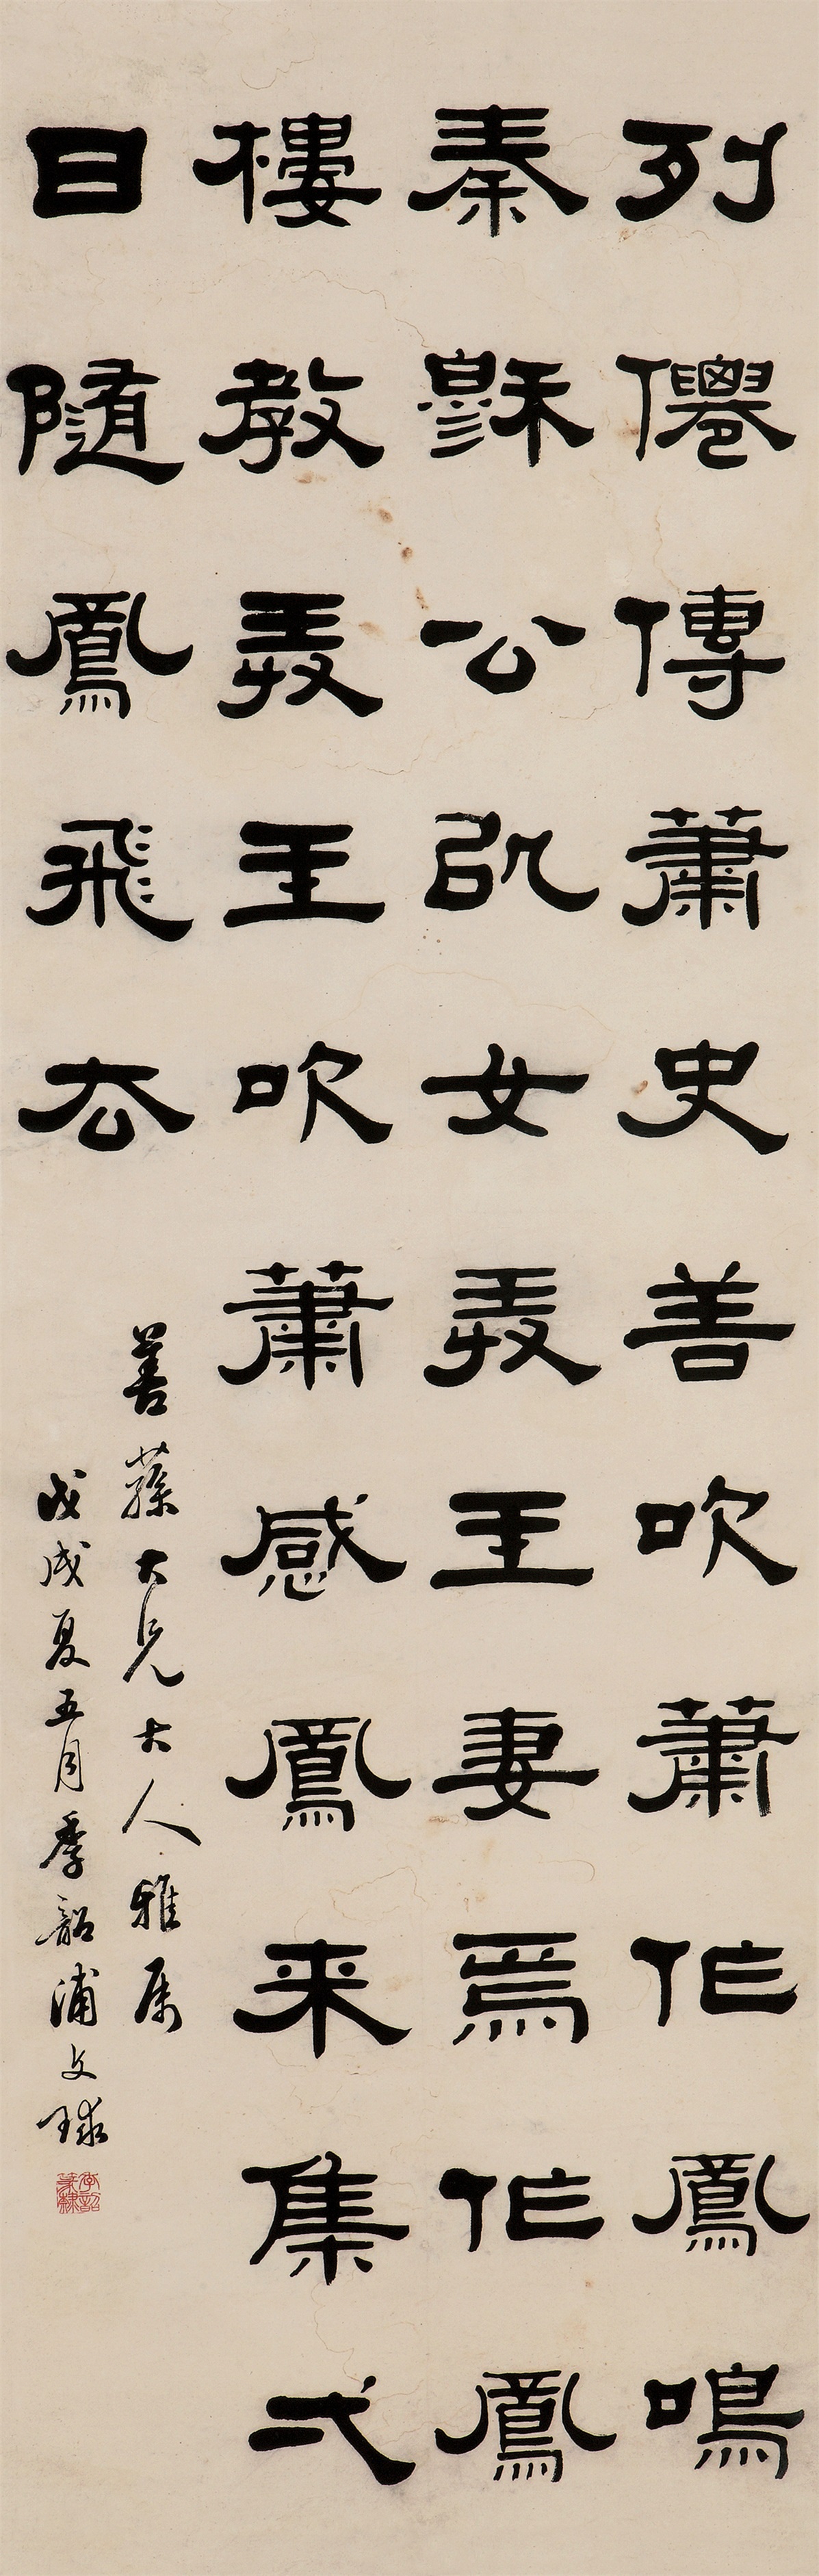 列僊傳蕭史善吹蕭作鳳鳴
秦穌公㠯女弄玉妻焉作鳳
樓教弄玉吹蕭感鳳来集弌
日隨鳳飛去
善蓀大兄大人雅屬
戊戌夏五月季韶浦文球
季韶篆隸